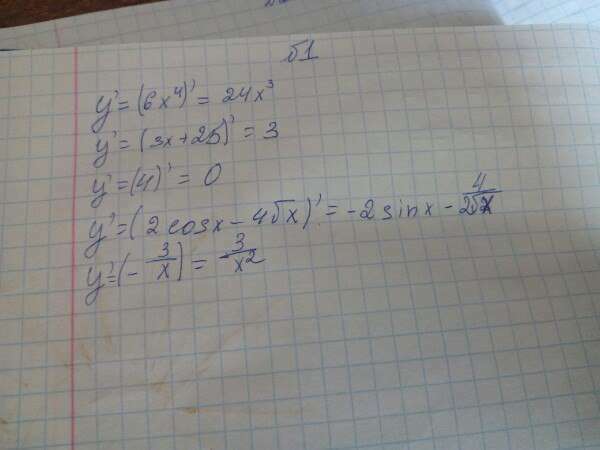 б1
y' = (6x⁴)' = 24x³
y' = (3x + 25)' = 3
y' = (4)' = 0
y' = (2cosx - 4√x)' = -2sinx - 4/2√x
y' = (-3/x) = 3/x²